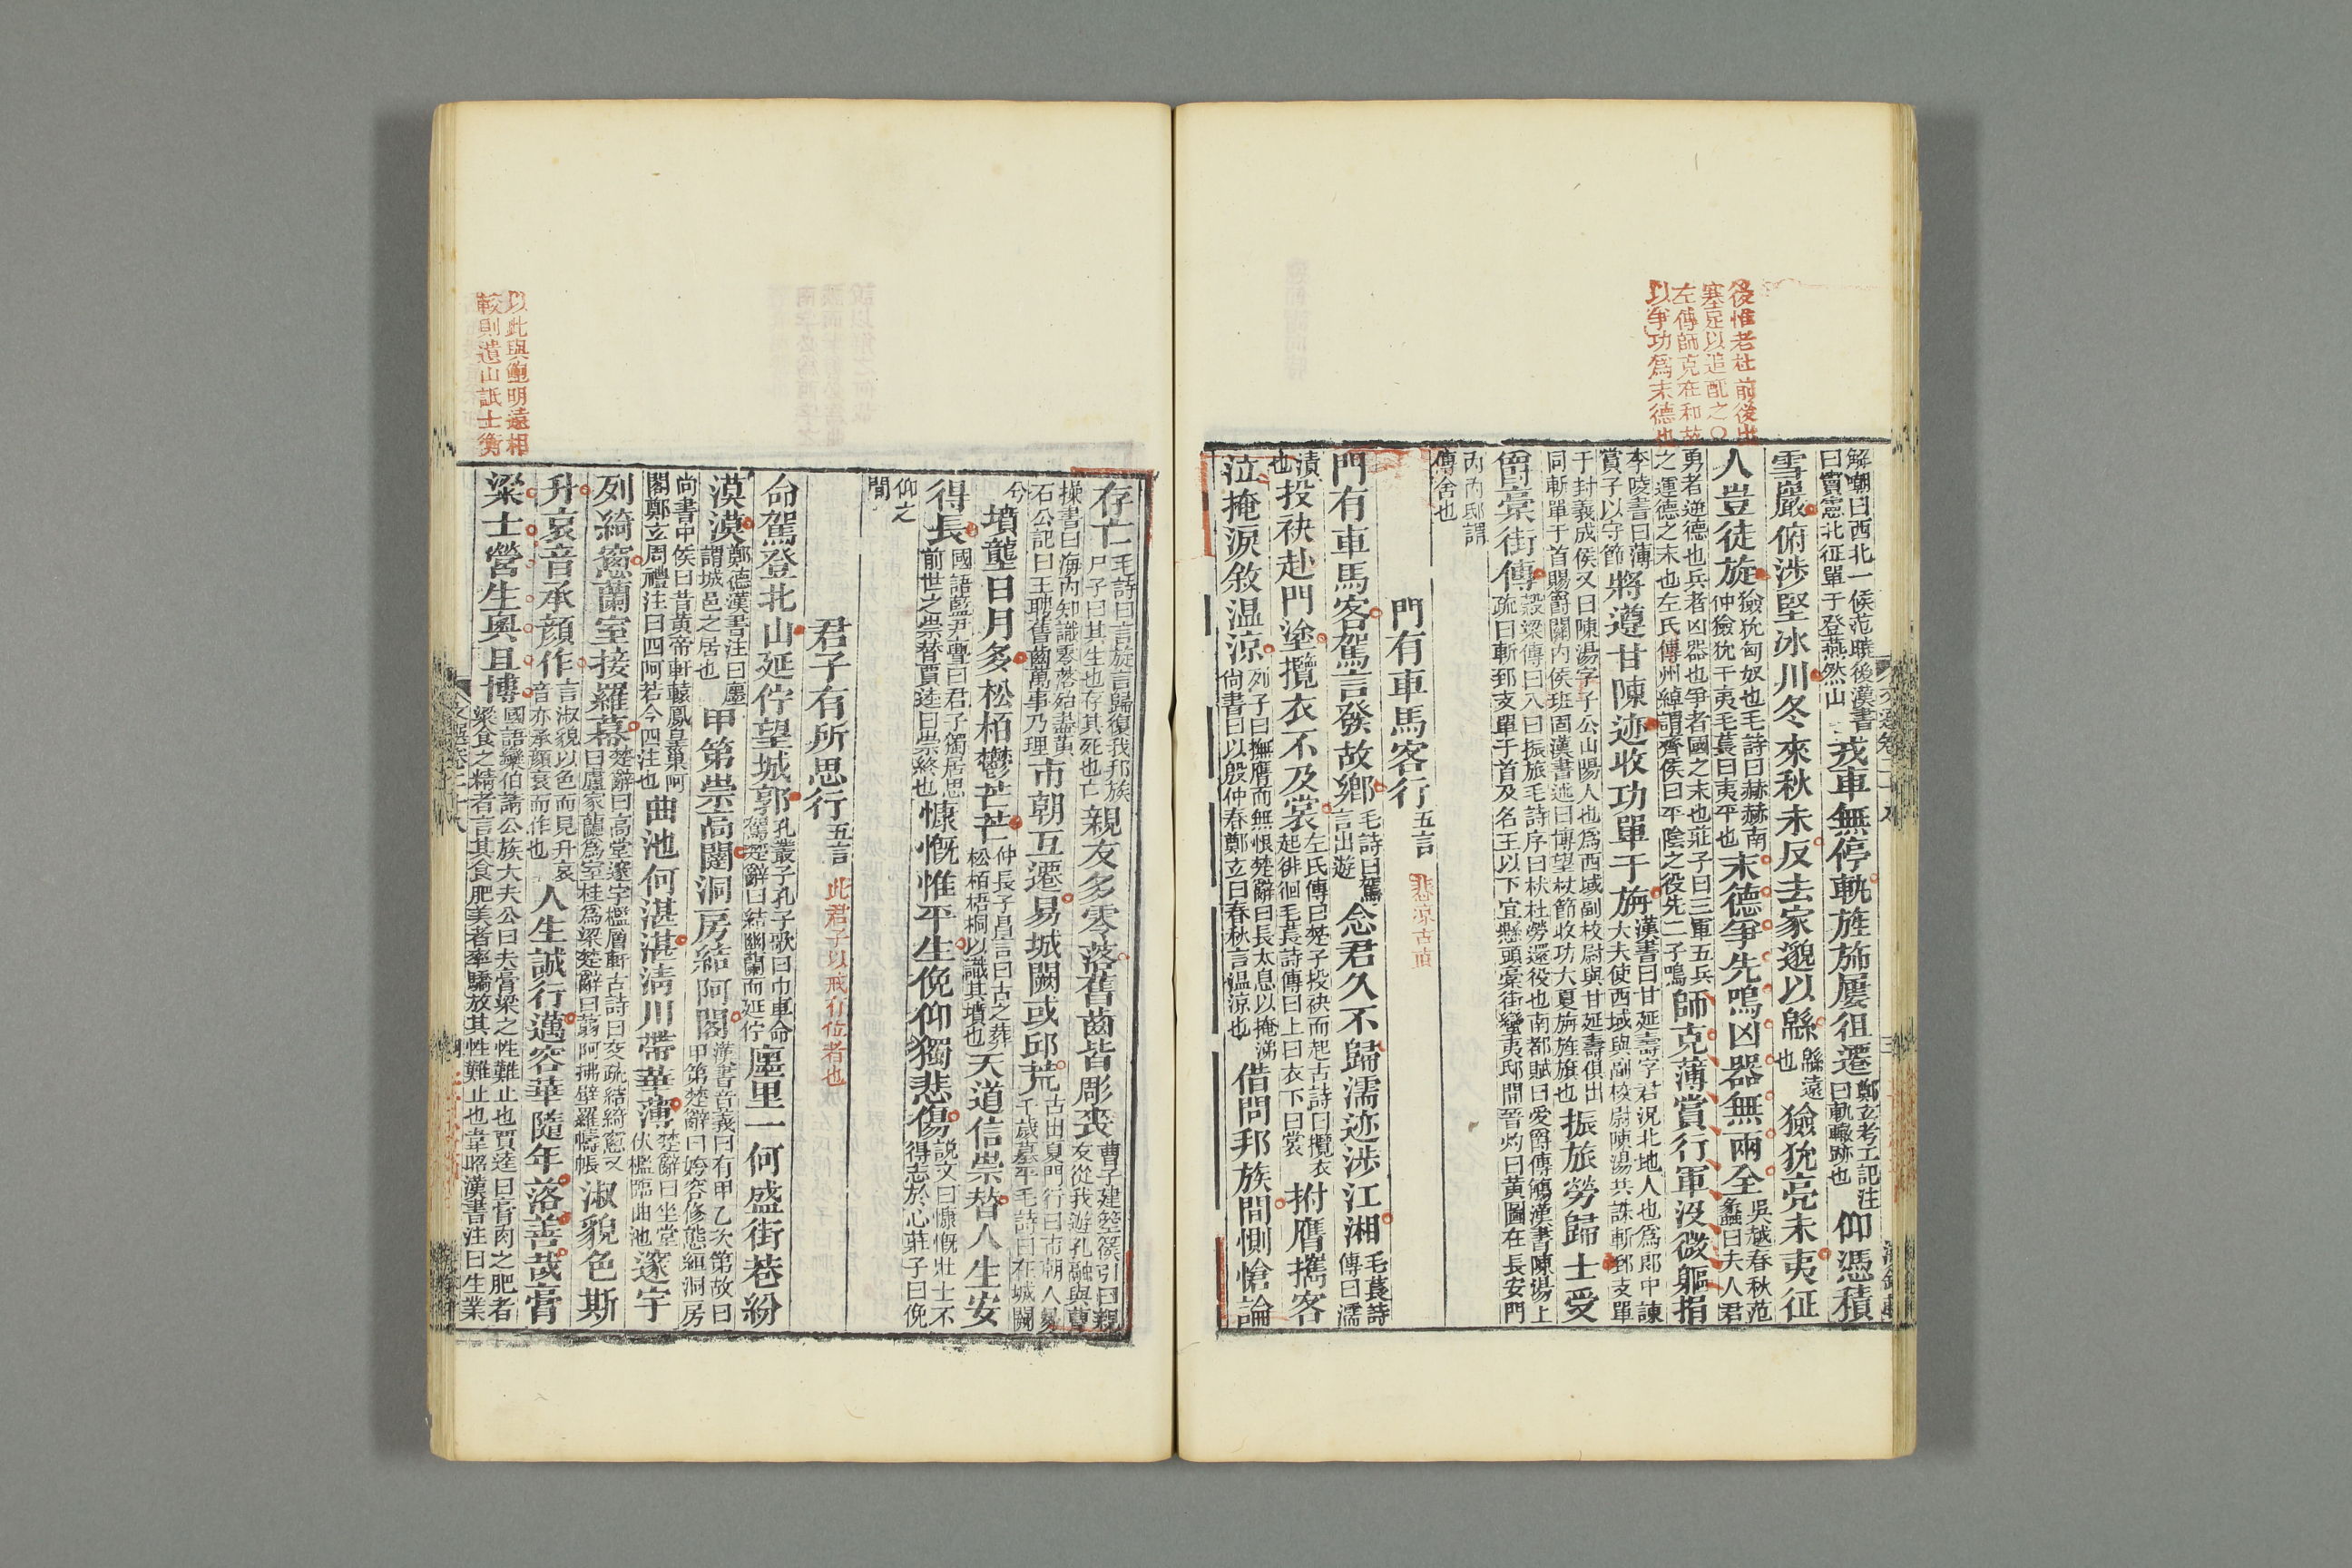 後惟老杜前後出
塞足以追配之○
左傳師克在和故
以爭功爲末德也
文選卷二十八 三 海錄軒
解嘲曰西北一候范曄後漢書曰竇憲北征單于登燕然山戎車無停軌旌旆屢徂遷鄭玄考工記注曰軌轍跡也仰憑積
雪巖俯涉堅冰川冬來秋未反去家邈以緜緜遠也獫狁亮未夷征
人豈徒旋獫狁匈奴也毛詩曰赫赫南仲獫狁于夷毛萇曰夷平也末德爭先鳴凶器無兩全吳越春秋范蠡曰夫人君
勇者逆德也兵者凶器也爭者國之末也莊子曰三軍五兵之運德之末也左氏傳州綽謂齊侯曰平陰之役先二子鳴師克薄賞行軍沒微軀捐
李陵書曰薄賞子以守節將遵甘陳迹收功單于旃漢書曰甘延壽字君況北地人也爲郎中諫大夫使西域與副校尉陳湯共誅斬郅支單
于封義成侯又曰陳湯字子公山陽人也爲西域副校尉與甘延壽俱出同斬單于首賜爵關內侯班固漢書述曰博望杖節收功大夏旃旌旗也振旅勞歸士受
爵槀街傳榖梁傳曰入曰振旅毛詩序曰杕杜勞還役也南都賦曰愛爵傳觴漢書陳湯上疏曰斬郅支單于首及名王以下宜懸頭槀街蠻夷邸間晉灼曰黃圖在長安門
內內邸謂傳舍也
門有車馬客行五言 悲涼古直
門有車馬客駕言發故鄉毛詩曰駕言出遊念君久不歸濡迹涉江湘毛萇詩傳曰濡
漬也投袂赴門塗攬衣不及裳左氏傳曰楚子投袂而起古詩曰攬衣起徘徊毛萇詩傳曰上曰衣下曰裳拊膺攜客
泣掩淚敘溫涼列子曰撫膺而無恨楚辭曰長太息以掩涕尚書曰以殷仲春鄭玄曰春秋言溫涼也借問邦族間惻愴論
存亡毛詩曰言旋言歸復我邦族尸子曰其生也存其死也亡親友多零落舊齒皆彫喪曹子建箜篌引曰親友從我遊孔融與曹
操書曰海內知識零落殆盡黃石公記曰王聘舊齒萬事乃理市朝互遷易城闕或邱荒古出夏門行曰市朝人易千歲墓平毛詩曰在城闕
兮墳壟日月多松栢鬱芒芒仲長子昌言曰古之葬松栢梧桐以識其墳也天道信崇替人生安
得長國語藍尹亹曰君子獨居思前世之崇替賈逵曰崇終也慷慨惟平生俛仰獨悲傷說文曰慷慨壯士不得志於心莊子曰俛
仰之間
君子有所思行五言 此君子以戒在位者也
命駕登北山延佇望城郭孔叢子孔子歌曰巾車命駕楚辭曰結幽蘭而延佇廛里一何盛街巷紛
漠漠鄭德漢書注曰廛謂城邑之居也甲第崇高闥洞房結阿閣漢書音義曰有甲乙次第故曰甲第楚辭曰姱容修態絙洞房
尚書中侯曰昔黃帝軒轅鳳皇巢阿閣鄭玄周禮注曰四阿若今四注也曲池何湛湛清川帶華薄楚辭曰坐堂伏檻臨曲池邃宇
列綺窻蘭室接羅幕楚辭曰高堂邃宇檻層軒古詩曰交疏結綺窻又曰盧家蘭爲室桂爲梁楚辭曰蒻阿拂壁羅幬帳淑貌色斯
升哀音承顏作言淑貌以色而見升哀音亦承顏哀而作也人生誠行邁容華隨年落善哉膏
粱士營生奧且博國語欒伯請公族大夫公曰夫膏粱之性難止也賈逵曰膏肉之肥者粱食之精者言其食肥美者率驕放其性難止也韋昭漢書注曰生業
以此與鮑明遠相
較則遺山詆士衡
文選卷二十八